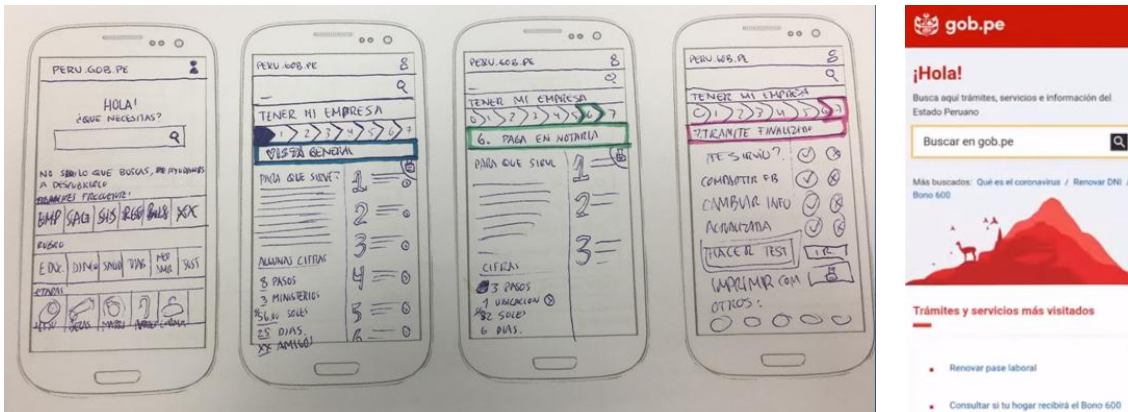 PERU.GOB.PE
HOLA!
¿QUE NECESITAS?
NO SABES LO QUE BUSCAS, TE AYUDAMOS
A DESCUBRIRLO
FRECUENTES:
EMP SALU SIS
RUBRO
EDUC. DINERO SALUD
ETAPAS
PERU.GOB.PE
TENER MI EMPRESA
1 2 3 4 5 6 7
VISTA GENERAL
PARA QUE SIRVE?
1
2
3
ALGUNAS CIFRAS
4
8 PASOS
3 MINISTERIOS
5
SOLES
25 DIAS.
6
XX AMIGO!
PERU.GOB.PE
TENER MI EMPRESA
0 1 2 3 4 5 6 7
6. PAGA EN NOTARIA
PARA QUE SIRVE
1
2
3
CIFRAS
3 PASOS
1 UBICACION
82 SOLES
6 DIAS.
PERU.GOB.PE
TENER MI EMPRESA
0 1 2 3 4 5 6 7
7. TRAMITE FINALIZADO
TE SIRVIÓ?
COMPARTIR FB
CAMBIAR INFO
ACTUALIZADA
HACER TEST
IR
IMPRIMIR COM
OTROS:
gob.pe
¡Hola!
Busca aquí trámites, servicios e información del
Estado Peruano
Buscar en gob.pe
Más buscados: Qué es el coronavirus / Renovar DNI /
Bono 600
Trámites y servicios más visitados
Renovar pase laboral
Consultar si tu hogar recibirá el Bono 600